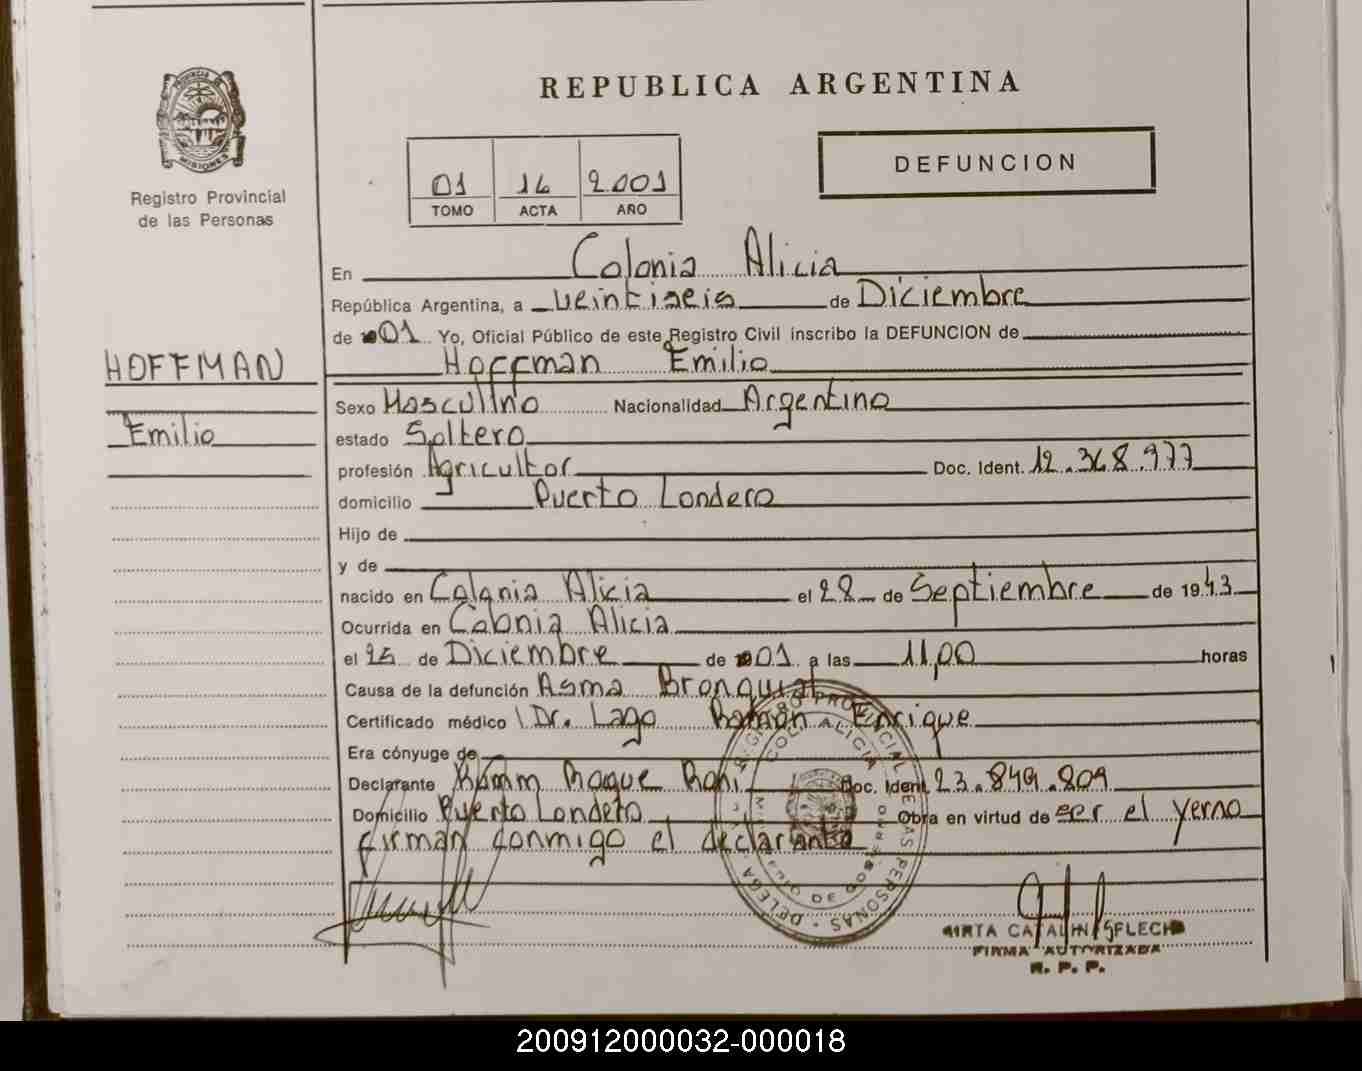 REPUBLICA ARGENTINA
PROVINCIA DE
MISIONES
Registro Provincial
de las Personas
DEFUNCION
01 16 2.001
TOMO ACTA AÑO
En Colonia Alicia
República Argentina, a veintiseis de Diciembre
de 01 Yo, Oficial Público de este Registro Civil inscribo la DEFUNCION de
HOFFMAN
Emilio
Hoffman Emilio
Sexo Masculino Nacionalidad Argentino
estado Soltero
profesión Agricultor Doc. Ident. 12.368.977
domicilio Puerto Londero
Hijo de
y de
nacido en Colonia Alicia el 28 de Septiembre de 1943
Ocurrida en Colonia Alicia
el 25 de Diciembre de 01 a las 11,00 horas
Causa de la defunción Asma Bronquial
Certificado médico Dr. Lago Ramón Enrique
Era cónyuge de
Declarante Kamm Roque Doc. Ident. 23.849.809
Domicilio Puerto Londero Obra en virtud de ser el yerno
firman conmigo el declarante
REGISTRO PROVINCIAL DE LAS PERSONAS - DELEGA
COL. ALICIA
FIRMA AUTORIZADA
R. P. P.
200912000032-000018